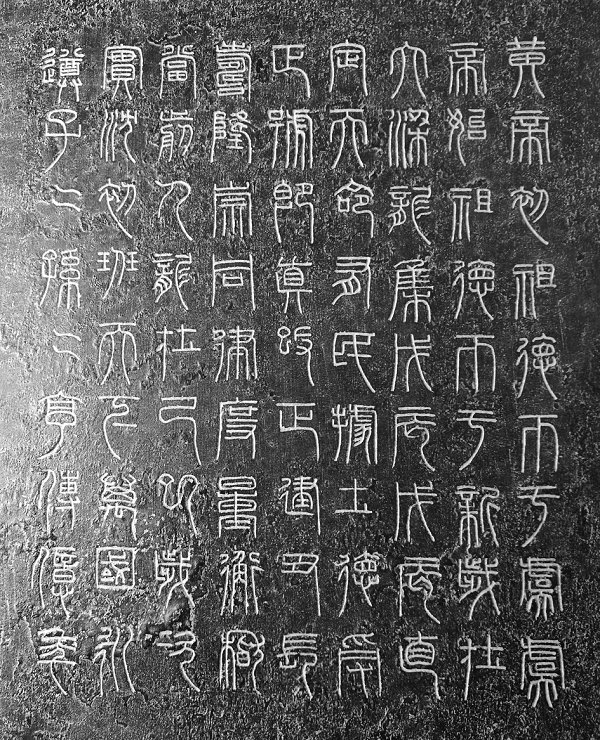 黃帝初祖德帀于虞虞
帝始祖德帀于新歲在
大梁龍集戊辰戊辰直
定天命有民據土德受
正號即真改正建丑長
壽隆崇同律度量衡稽
當前人龍在己巳歲次
實沈初班天下萬國永
遵子〻孫〻亨傳億年